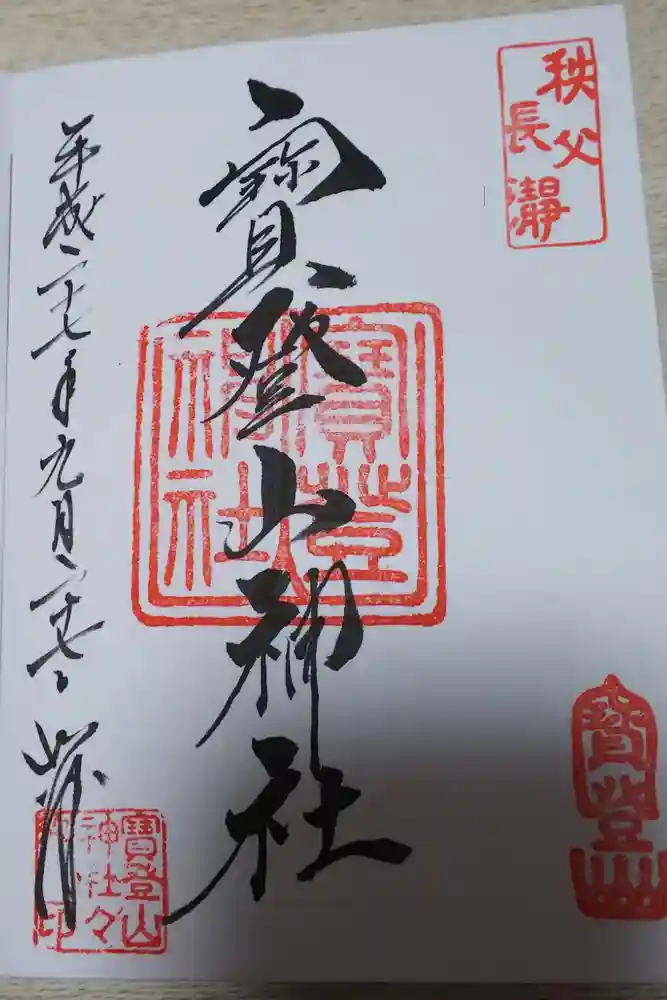 秩父
長瀞
寶登山
寶登山神社
寶登山
神社
平成二十七年九月二十七日
寶登山
神社々
印